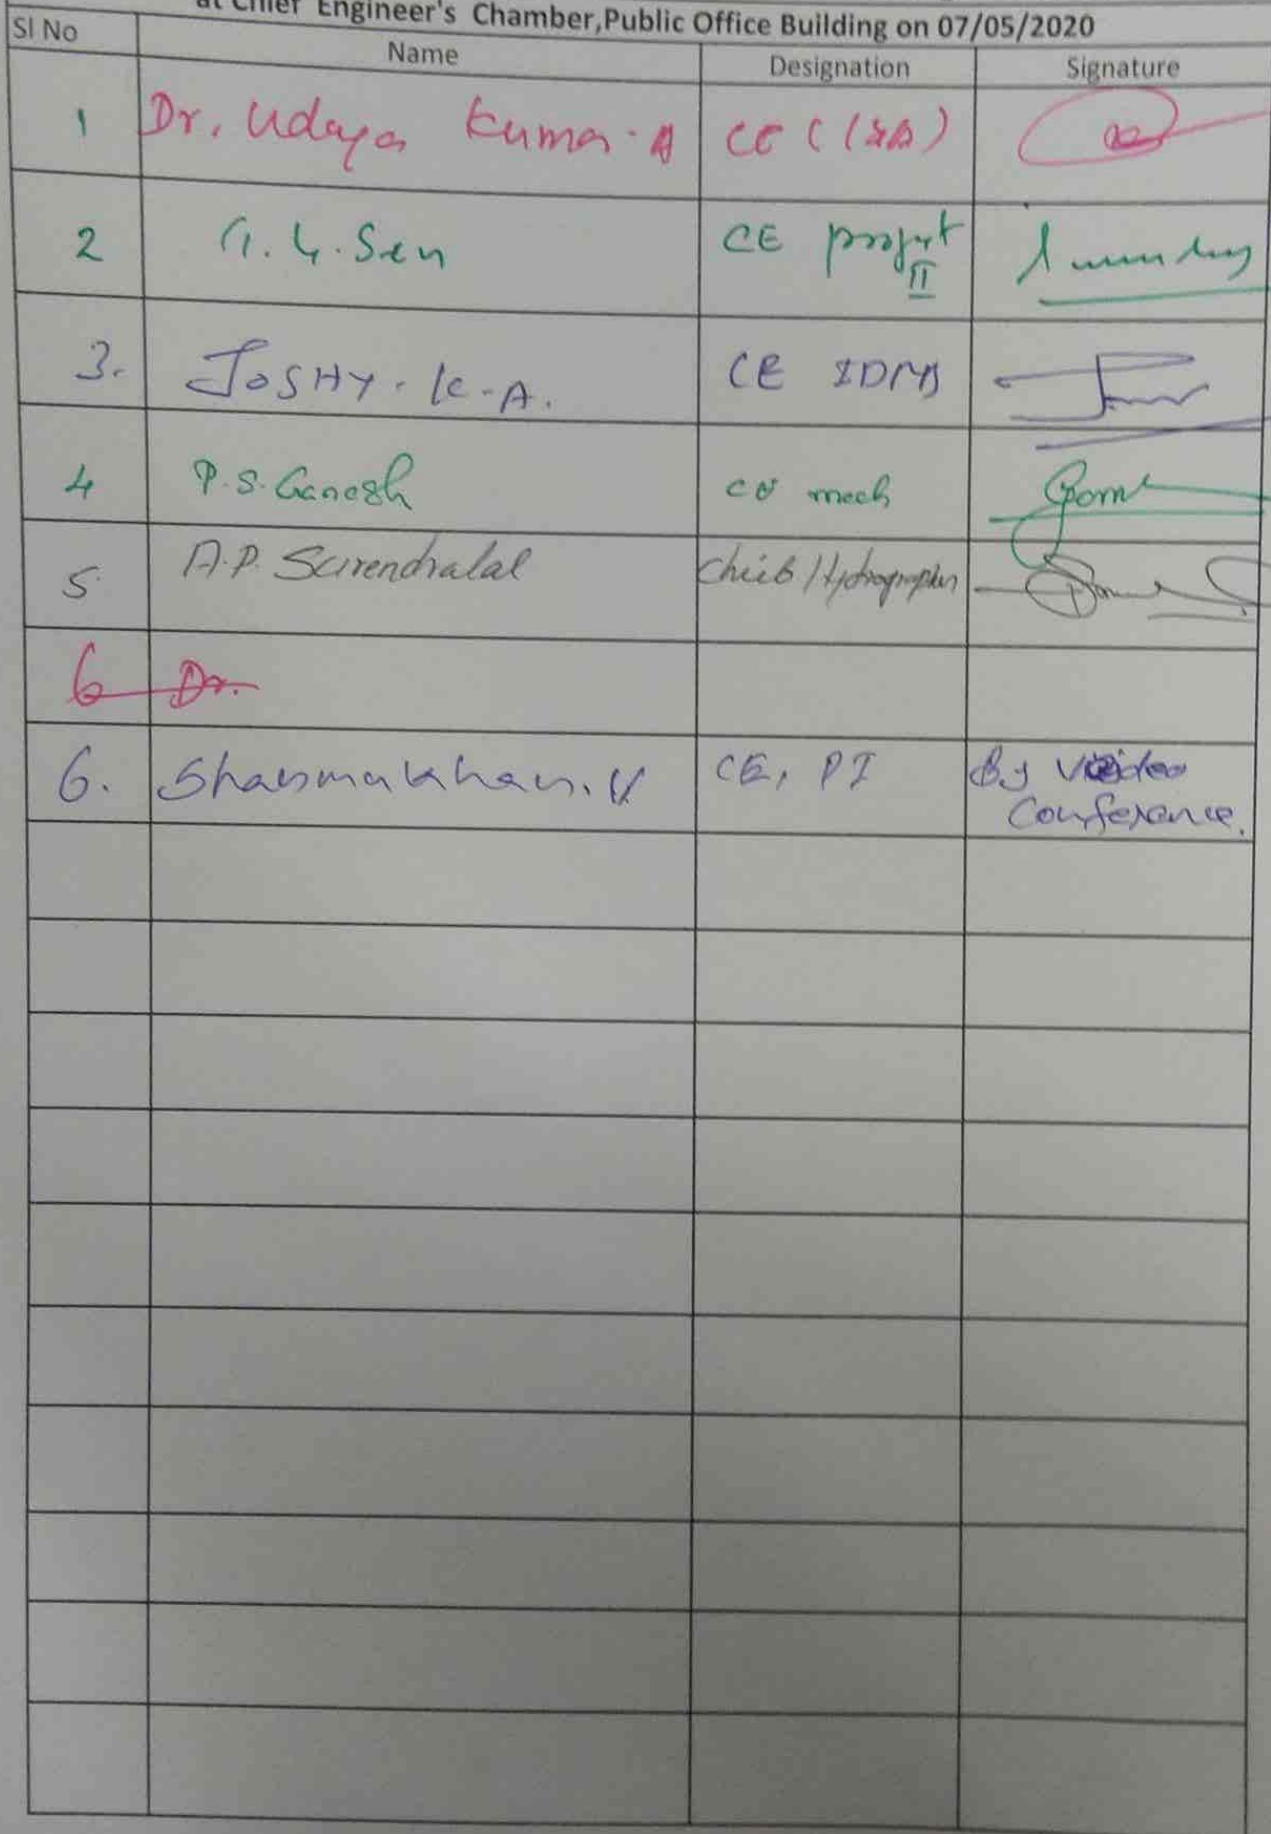 at Chief Engineer's Chamber,Public Office Building on 07/05/2020
Sl No Name Designation Signature
1 Dr. Udaya Kumar. A CE
2 Sen CE project II
3. JOSHY. K.A. CE IDRB
4 P.S. Ganesh CE mech
5. A.P. Surendralal Chief Hydrographer
6 Dr.
6. CE, PI By Video
Conference.